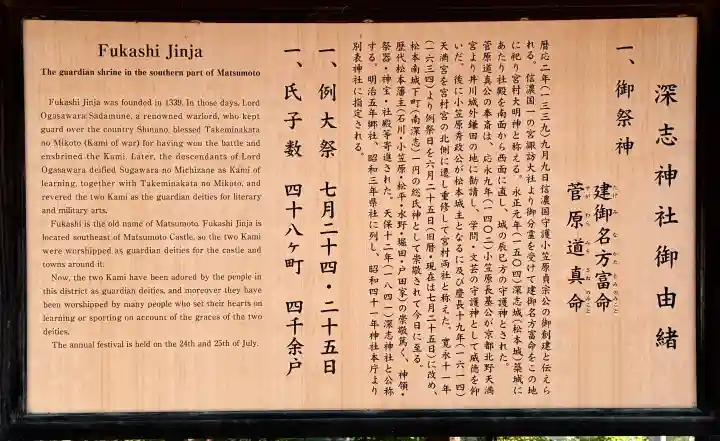 深志神社御由緒
一、御祭神
建御名方富命
たけみなかたとめのみこと
菅原道真命
すがわらみちざねのみこと
暦応二年(一三三九)九月九日信濃国守護小笠原貞宗公の御創建と伝えら
れる。信濃国一の宮諏訪大社より御分霊を受けて建御名方富命をこの地
に祀り宮村大明神と称える。永正元年(一五〇四)深志城(松本城)築城に
あたり社殿を南面から西面に直し、城の辰巳方の守護神とされた。
菅原道真公の奉斎は、応永九年(一四〇二)小笠原長基公が京都北野天満
宮より井川城外鎌田の地に勧請し、学問・文芸の守護神として威徳を仰
いだ。後に小笠原秀政公が松本城主となるに及び慶長十九年(一六一四)
天満宮を宮村宮の北側に遷し重修して宮村両社と称えた。寛永十一年
(一六三四)より例祭日を六月二十五日(旧暦・現在は七月二十五日)に改め、
松本南城下町(南深志)一円の総氏神として崇敬されて今日に至る。
歴代松本藩主(石川・小笠原・松平・水野・堀田・戸田家)の崇敬篤く、神領・
祭器・神宝・社殿等寄進された。天保十二年(一八四一)深志神社と公称
する。明治五年郷社、昭和三年県社に列し、昭和四十一年神社本庁より
別表神社に指定される。
一、例大祭 七月二十四・二十五日
一、氏子数 四十八ヶ町 四千余戸
Fukashi Jinja
The guardian shrine in the southern part of Matsumoto
Fukashi Jinja was founded in 1339. In those days, Lord
Ogasawara Sadamune, a renowned warlord, who kept
guard over the country Shinano, blessed Takeminakata
no Mikoto (Kami of war) for having won the battle and
enshrined the Kami. Later, the descendants of Lord
Ogasawara deified Sugawara no Michizane as Kami of
learning, together with Takeminakata no Mikoto, and
revered the two Kami as the guardian deities for literary
and military arts.
Fukashi is the old name of Matsumoto. Fukashi Jinja is
located southeast of Matsumoto Castle, so the two Kami
were worshipped as guardian deities for the castle and
towns around it.
Now, the two Kami have been adored by the people in
this district as guardian deities, and moreover they have
been worshipped by many people who set their hearts on
learning or sporting on account of the graces of the two
deities.
The annual festival is held on the 24th and 25th of July.